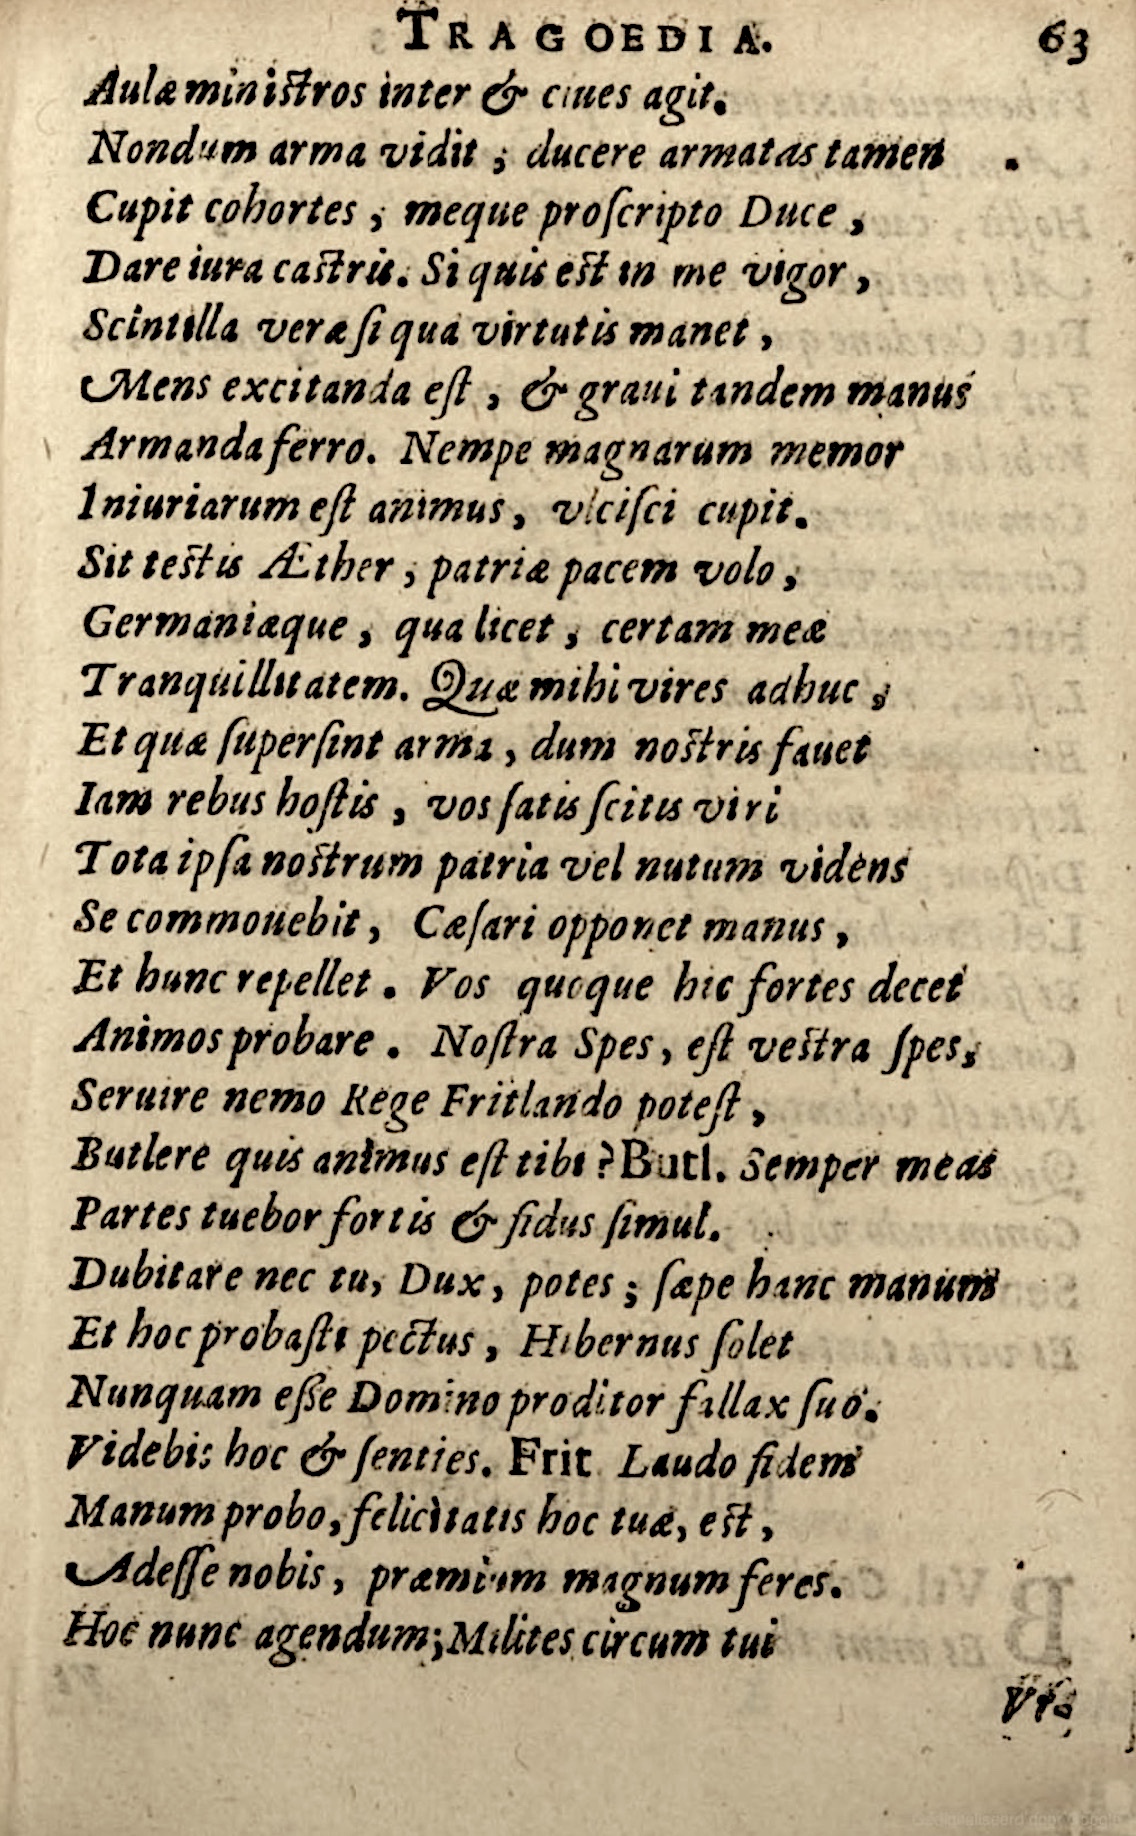 TRAGOEDIA. 63
Aulæ miniſtros inter & ciues agit.
Nondum arma vidit ; ducere armatas tamen
Cupit cohortes ; meque proſcripto Duce ,
Dare iura caſtris. Si quis eſt in me vigor ,
Scintilla veræ ſi qua virtutis manet ,
Mens excitanda eſt , & graui tandem manus
Armanda ferro. Nempe magnarum memor
Iniuriarum eſt animus, vlciſci cupit.
Sit teſtis Æther , patriæ pacem volo ,
Germaniæque , qua licet , certam meæ
Tranquillitatem. Quæ mihi vires adhuc ,
Et quæ ſuperſint arma , dum noſtris fauet
Iam rebus hoſtis , vos ſatis ſcitis viri
Tota ipſa noſtrum patria vel nutum videns
Se commouebit, Cæſari opponet manus ,
Et hunc repellet . Vos quoque hic fortes decet
Animos probare . Noſtra Spes, eſt veſtra ſpes,
Seruire nemo Rege Fritlando poteſt ,
Butlere quis animus eſt tibi ? Butl. Semper meas
Partes tuebor fortis & fidus ſimul.
Dubitare nec tu, Dux, potes ; ſæpe hanc manum
Et hoc probaſti pectus , Hibernus ſolet
Nunquam eſſe Domino proditor fallax ſuo.
Videbis hoc & ſenties. Frit. Laudo fidem
Manum probo, felicitatis hoc tuæ, eſt ,
Adeſſe nobis, præmium magnum feres.
Hoc nunc agendum; Milites circum tui